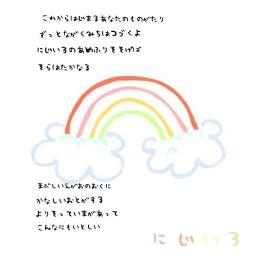 これからはじまるあなたのものがたり
ずっとながくみちはつづくよ
にじいろのあめふりそそげば
そらはたかなる
まぶしいえがおのおくに
かなしいおとがする
よりそっていまがあって
こんなにもいとしい
にじいろ